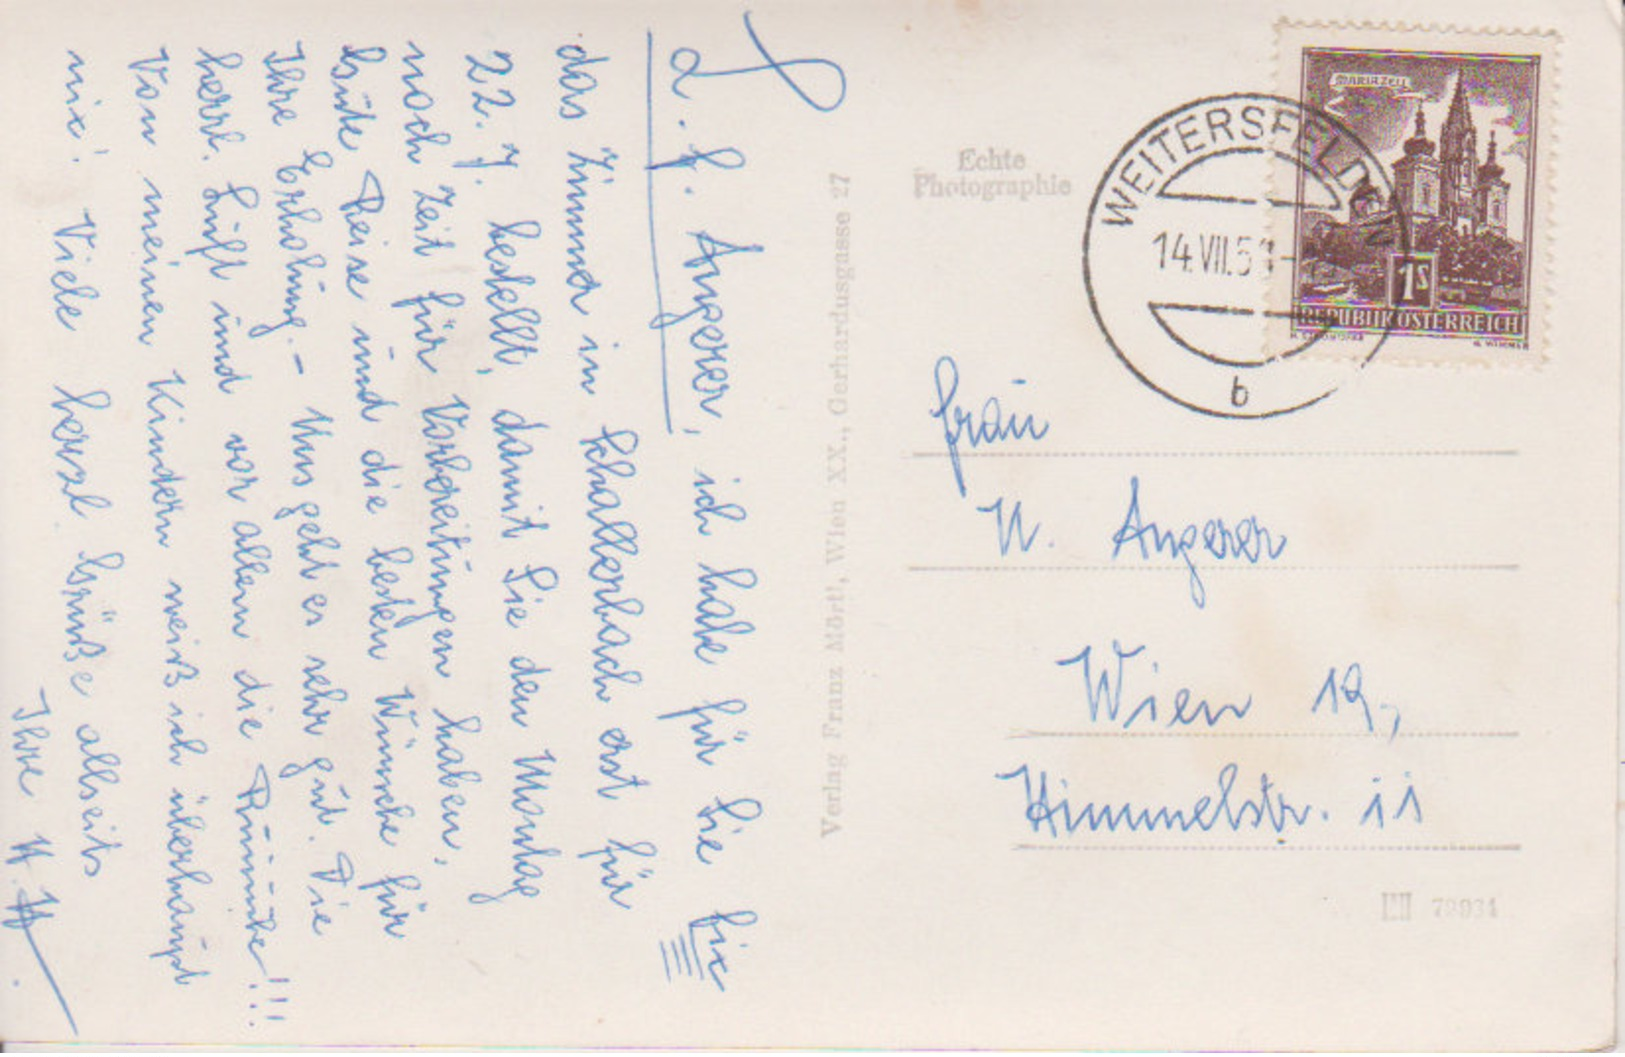 L. F. Angerer, ich habe für Sie fix
das Zimmer in Schallerbach erst für
22. 7. bestellt, damit Sie den Montag
noch Zeit für Vorbereitungen haben.
Gute Reise und die besten Wünsche für
Ihre Erholung. - Uns geht es sehr gut. Die
herrl. Luft und vor allem die Ruhe!!!
Von meinen Kindern weiß ich überhaupt
nix! Viele herzl. Grüße allseits
Ihre H.
Verlag Franz Mörtl, Wien XX., Gerhardusgasse 27
Echte
Photographie
WEITERSFELDEN
14.VII.5
b
MARIAZELL
1S
REPUBLIK ÖSTERREICH
Frau
N. Angerer
Wien 19,
Himmelstr. 11
78931